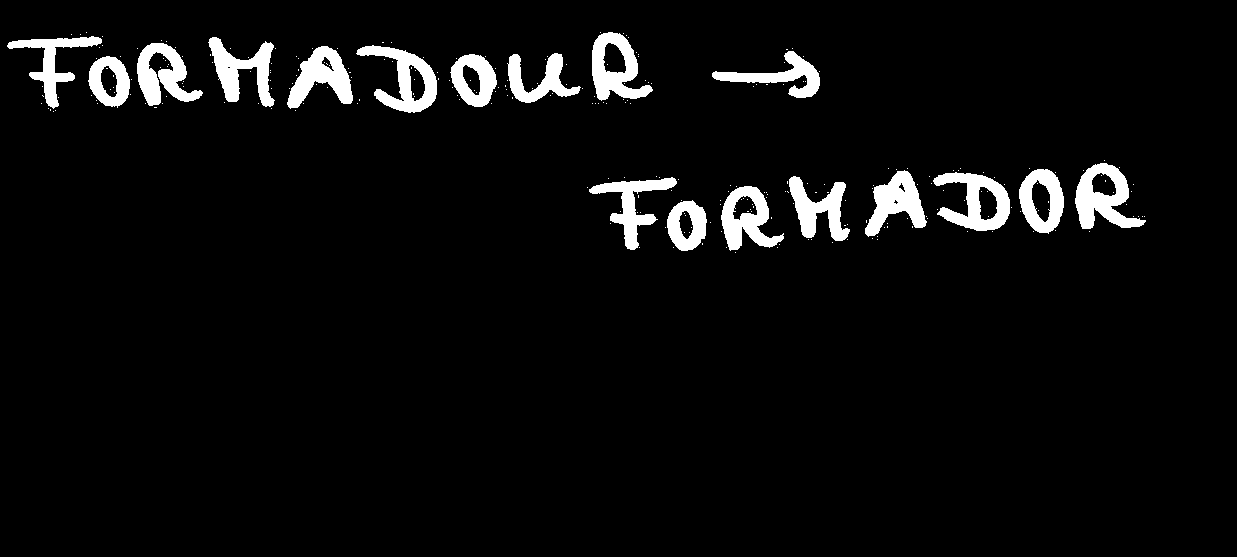 FORMADOUR →
FORMADOR